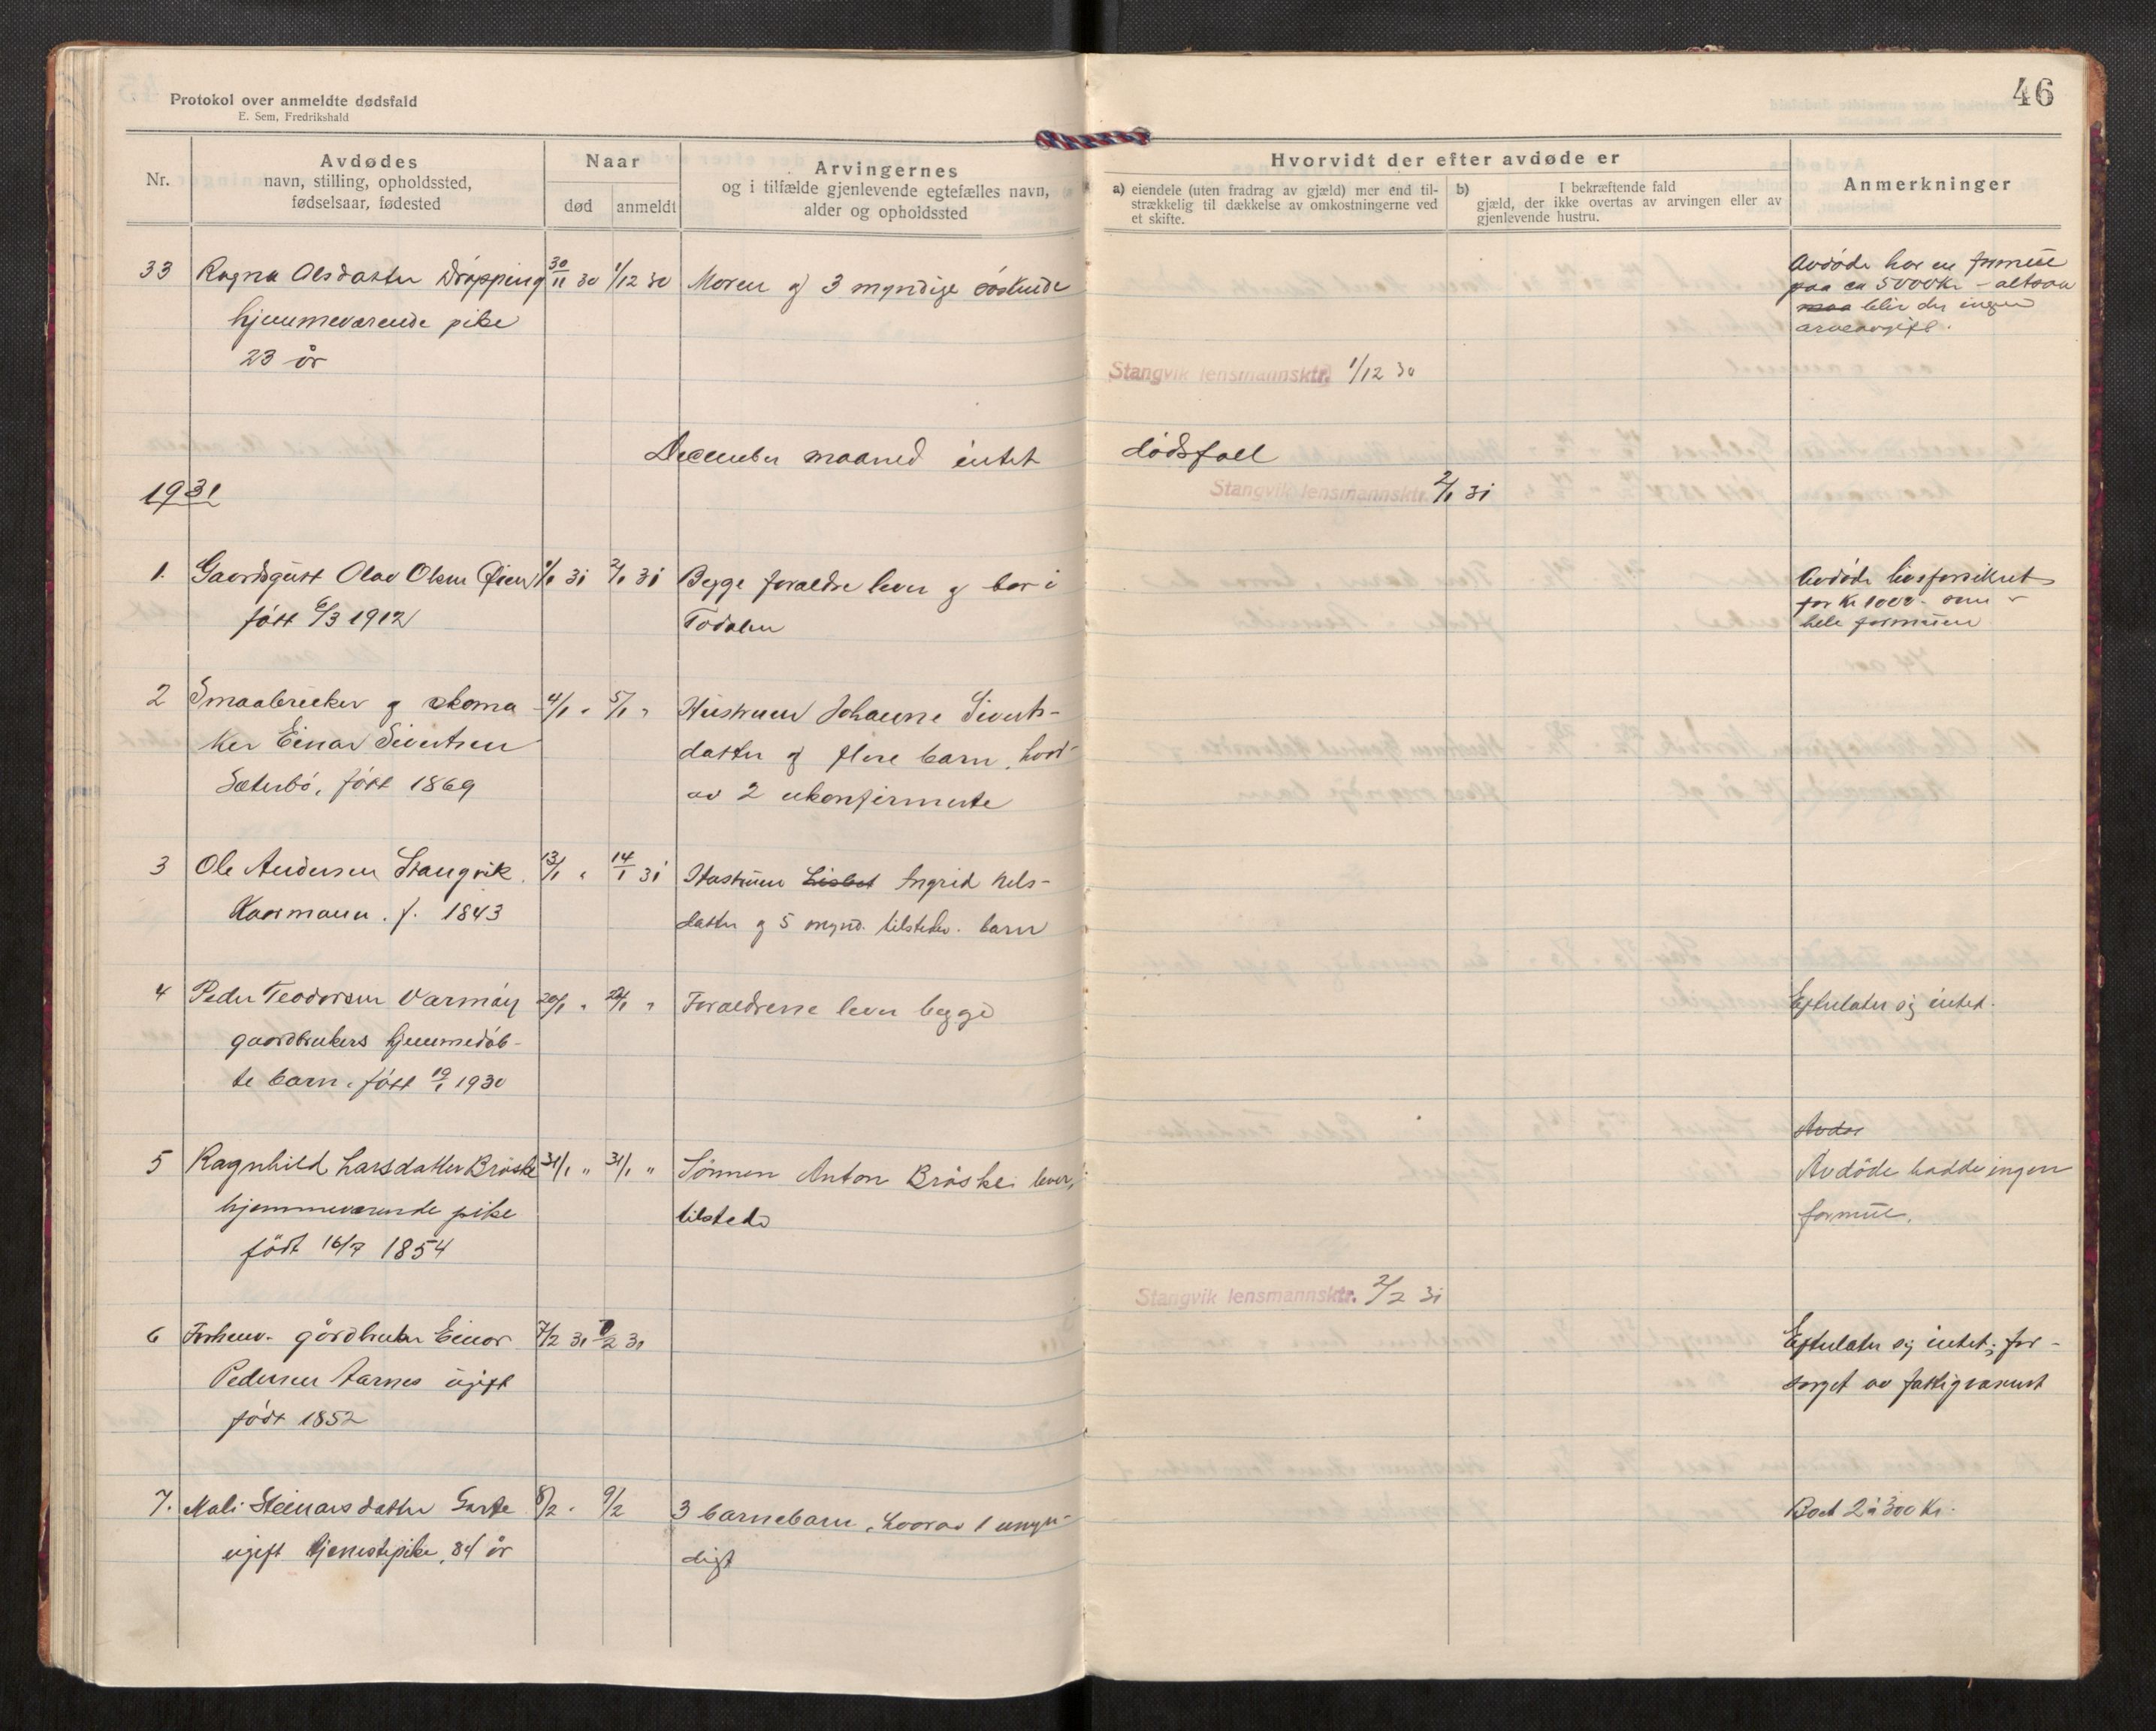 46
Protokol over anmeldte dødsfald
E. Sem, Fredrikshald
Nr.
Avdødes
navn, stilling, opholdssted,
fødselsaar, fødested
Naar
død
anmeldt
Arvingernes
og i tilfælde gjenlevende egtefælles navn,
alder og opholdssted
Hvorvidt der efter avdøde er
a) eiendele (uten fradrag av gjæld) mer end til-
strækkelig til dækkelse av omkostningerne ved
et skifte.
b) I bekræftende fald
gjæld, der ikke overtas av arvingen eller av
gjenlevende hustru.
Anmerkninger
33 Ragna Olsdatter Drøpping 30/11 30 1/12 30 Moren og 3 myndige søskende
hjemmeværende pike
23 år
Avdøde har en formue
paa ca 5000 Kr - altsaa
maa blir der ingen
arveavgift.
Stangvik lensmannsktr. 1/12 30
December maaned intet dødsfall
Stangvik lensmannsktr. 2/1 31
1931
1. Gaardsgutt Olav Olsen Øien 1/1 31 2/1 31 Begge foraldre lever og bor i
født 6/3 1912 Todalen
Avdøde livsforsikret
for Kr 1000.- som
hele formuen
2 Smaabruker og skoma- 4/1 " 5/1 " Hustruen Johanne Siverts-
ker Einar Sivertsen datter og flere barn, hvor-
Sæterbø, født 1869 av 2 ukonfirmerte
3 Ole Andersen Stangvik 13/1 " 14/1 31 Hustruen Lisbet Ingrid Nels-
Kaarmann. f. 1843 datter og 5 mynd. tilstedev. barn
4 Peder Teodorsen Varmøy 20/1 " 22/1 " Foraeldrene lever begge
gaardbrukers hjemmedøb-
te barn. født 19/1 1930
Efterlater sig intet.
5 Ragnhild Larsdatter Brøske 31/1 " 31/1 " Sønnen Anton Brøske lever,
hjemmeværende pike tilstede
født 16/7 1854
Avdøe
Avdöde hadde ingen
formue.
Stangvik lensmannsktr. 2/2 31
6 Forhenv. gårdbruker Einar 7/2 31 /2 31
Pedersen Aarnes ugift
født 1852
Efterlater sig intet; for-
sørget av fattigvæsenet
7. Mali Steinarsdatter 8/2 " 9/2 3 barnebarn, hvorav 1 umyn-
ugift tjenestepike, 84 år digt
Boet 2 à 300 Kr.